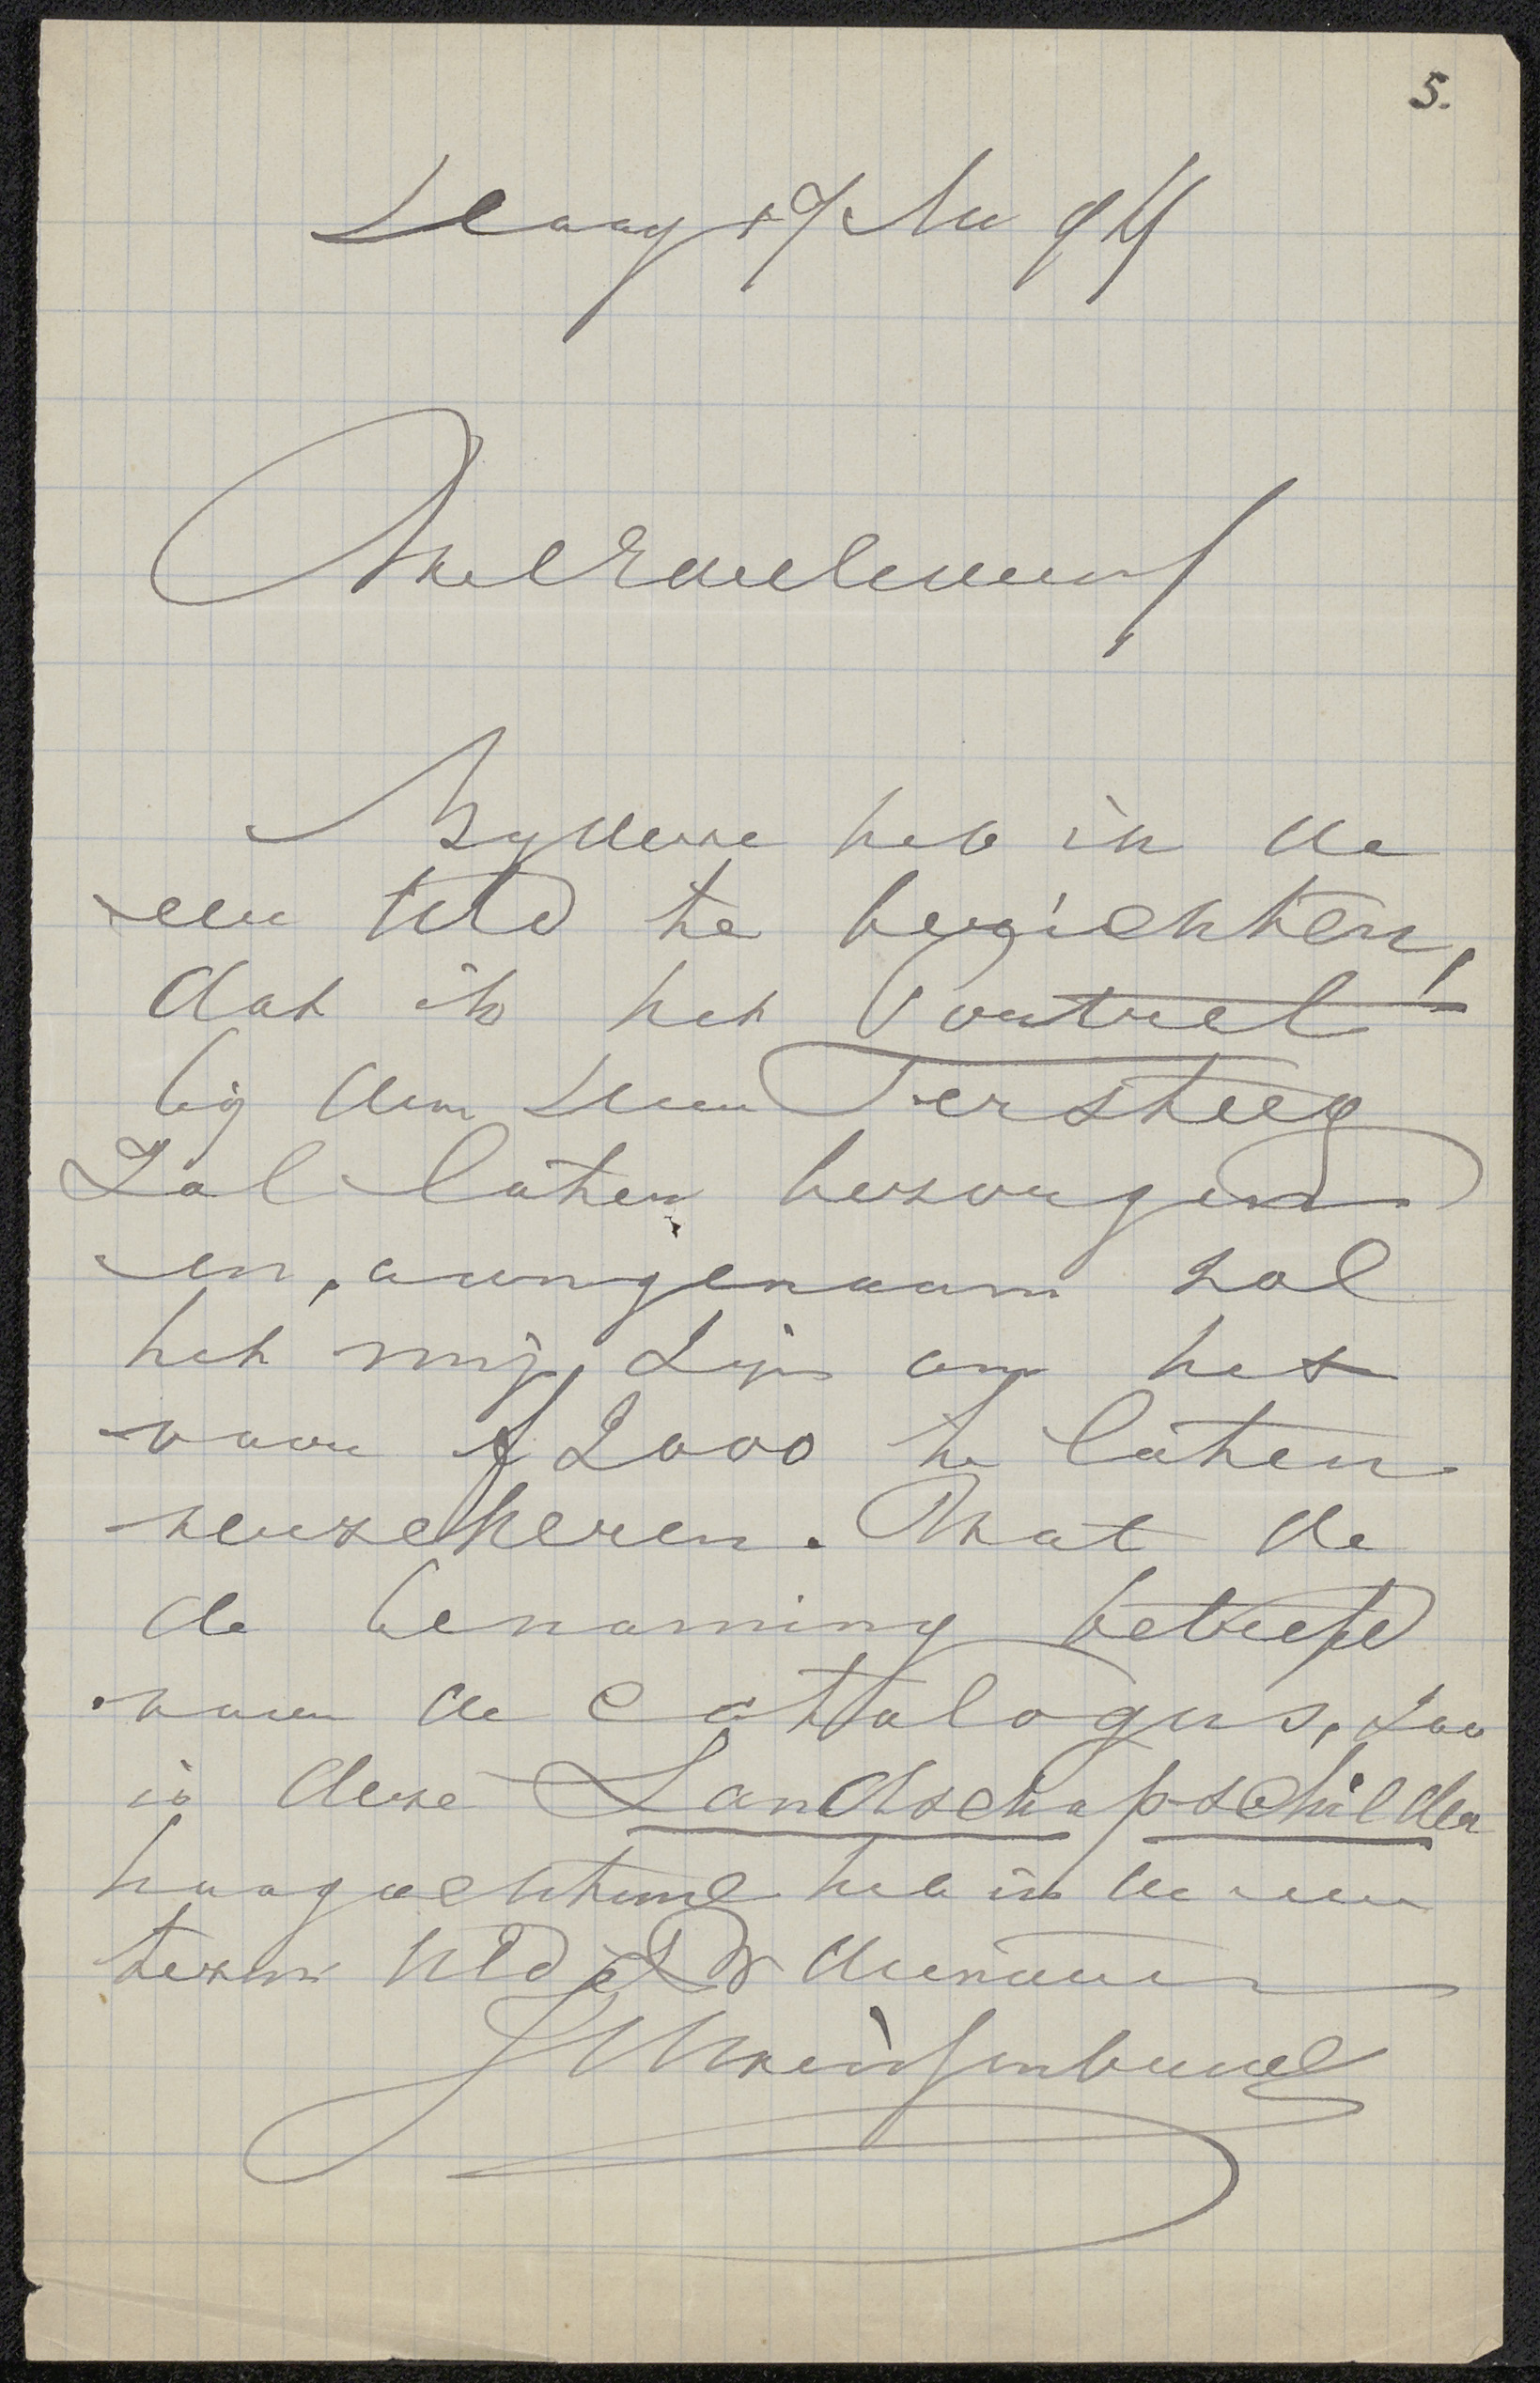 5.
Haag 17 Au 94
WelEdelleHeer,
Bydeeze heb ik de
eer UEd te berichten,
dat ik het Portret
bij den Heer Tersteeg
Zal laten bezorgen
en, aangenaam zal
het mij, zijn om het
voor ƒ 2000 te laten
verzekeren. Wat de
de benaming betreft
voor de cattalogus, zoo
is deze Landschapschilder
hoogachtend heb ik de eer
te zijn UEd Dw dienaar
JHWeissenbruch